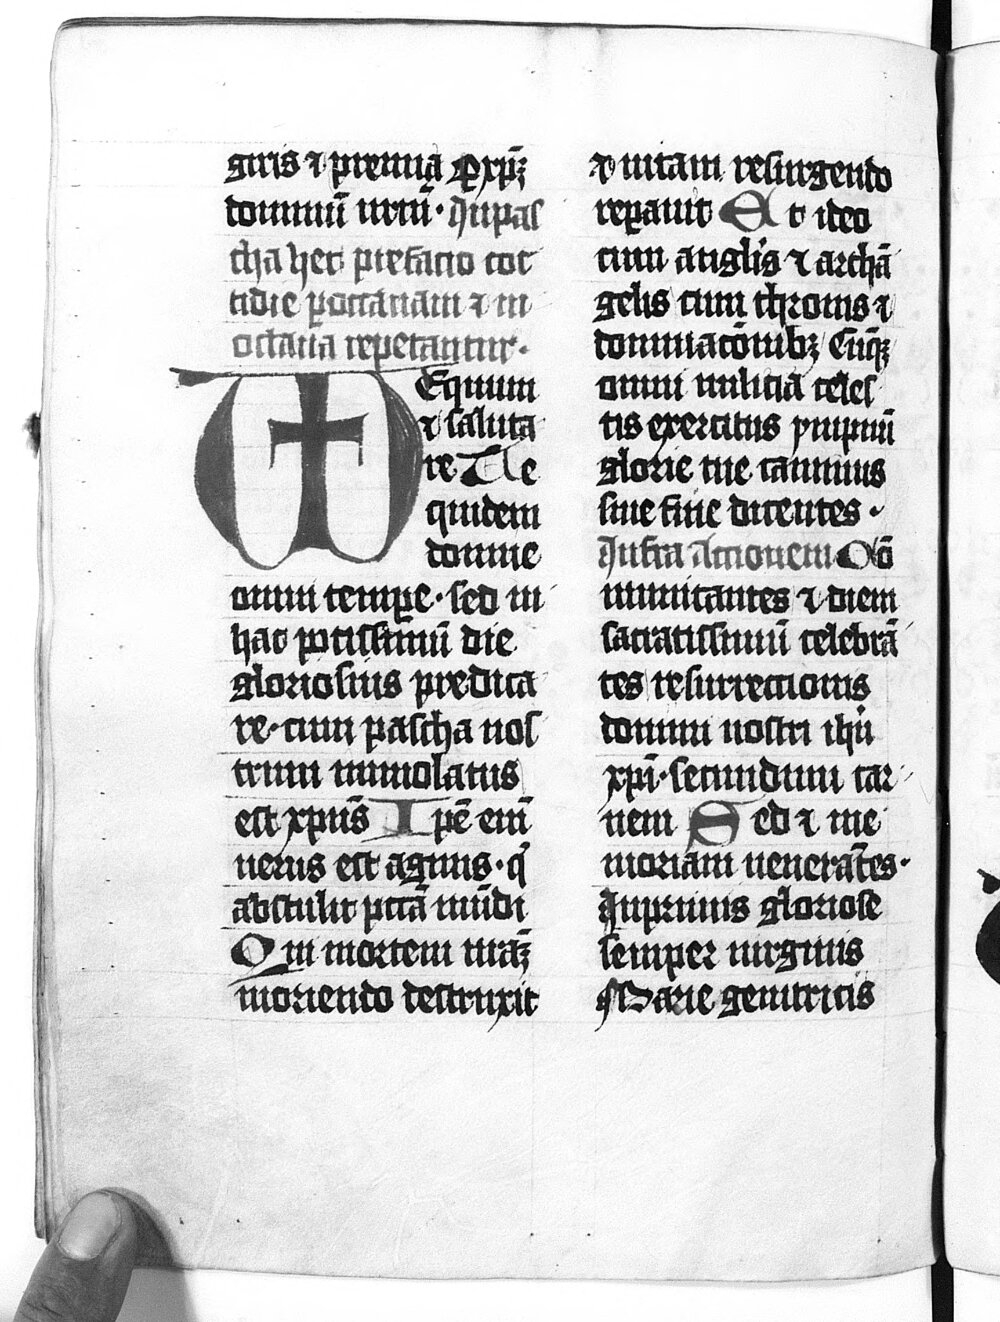 giris ⁊ premia Ꝑ xpm̄
dominū nr̄m · In pas
cha hec prefacio cot
tidie ꝑ octauam ⁊ in
octaua repetantur ·
Equum
⁊ saluta
re Te
quidem
domine
omni tempꝛe · sed in
hac potissimū die
gloriosius predica
re · cum pascha nos
trum immolatus
est xpūs Ipē enī
uerus est agnus · q̄
abstulit pctā mūdi
Qui mortem nr̄aꝫ
moriendo destruxit
⁊ uitam resurgendo
repauit Et ideo
cum anglis ⁊ archā
gelis cum thronis ⁊
dominacōnibꝫ Cūqꝫ
omni milicia celes
tis exercitus ympnū
glorie tue canimus
sine fine dicentes ·
Infra Actionem Cō
municantes ⁊ diem
sacratissimū celebrā
tes resurrectionis
domini nostri ihū
xpī · secundum car
nem Sed ⁊ me
moriam uenerātes ·
Inprimis gloriose
semper uirginis
Marie genitricis